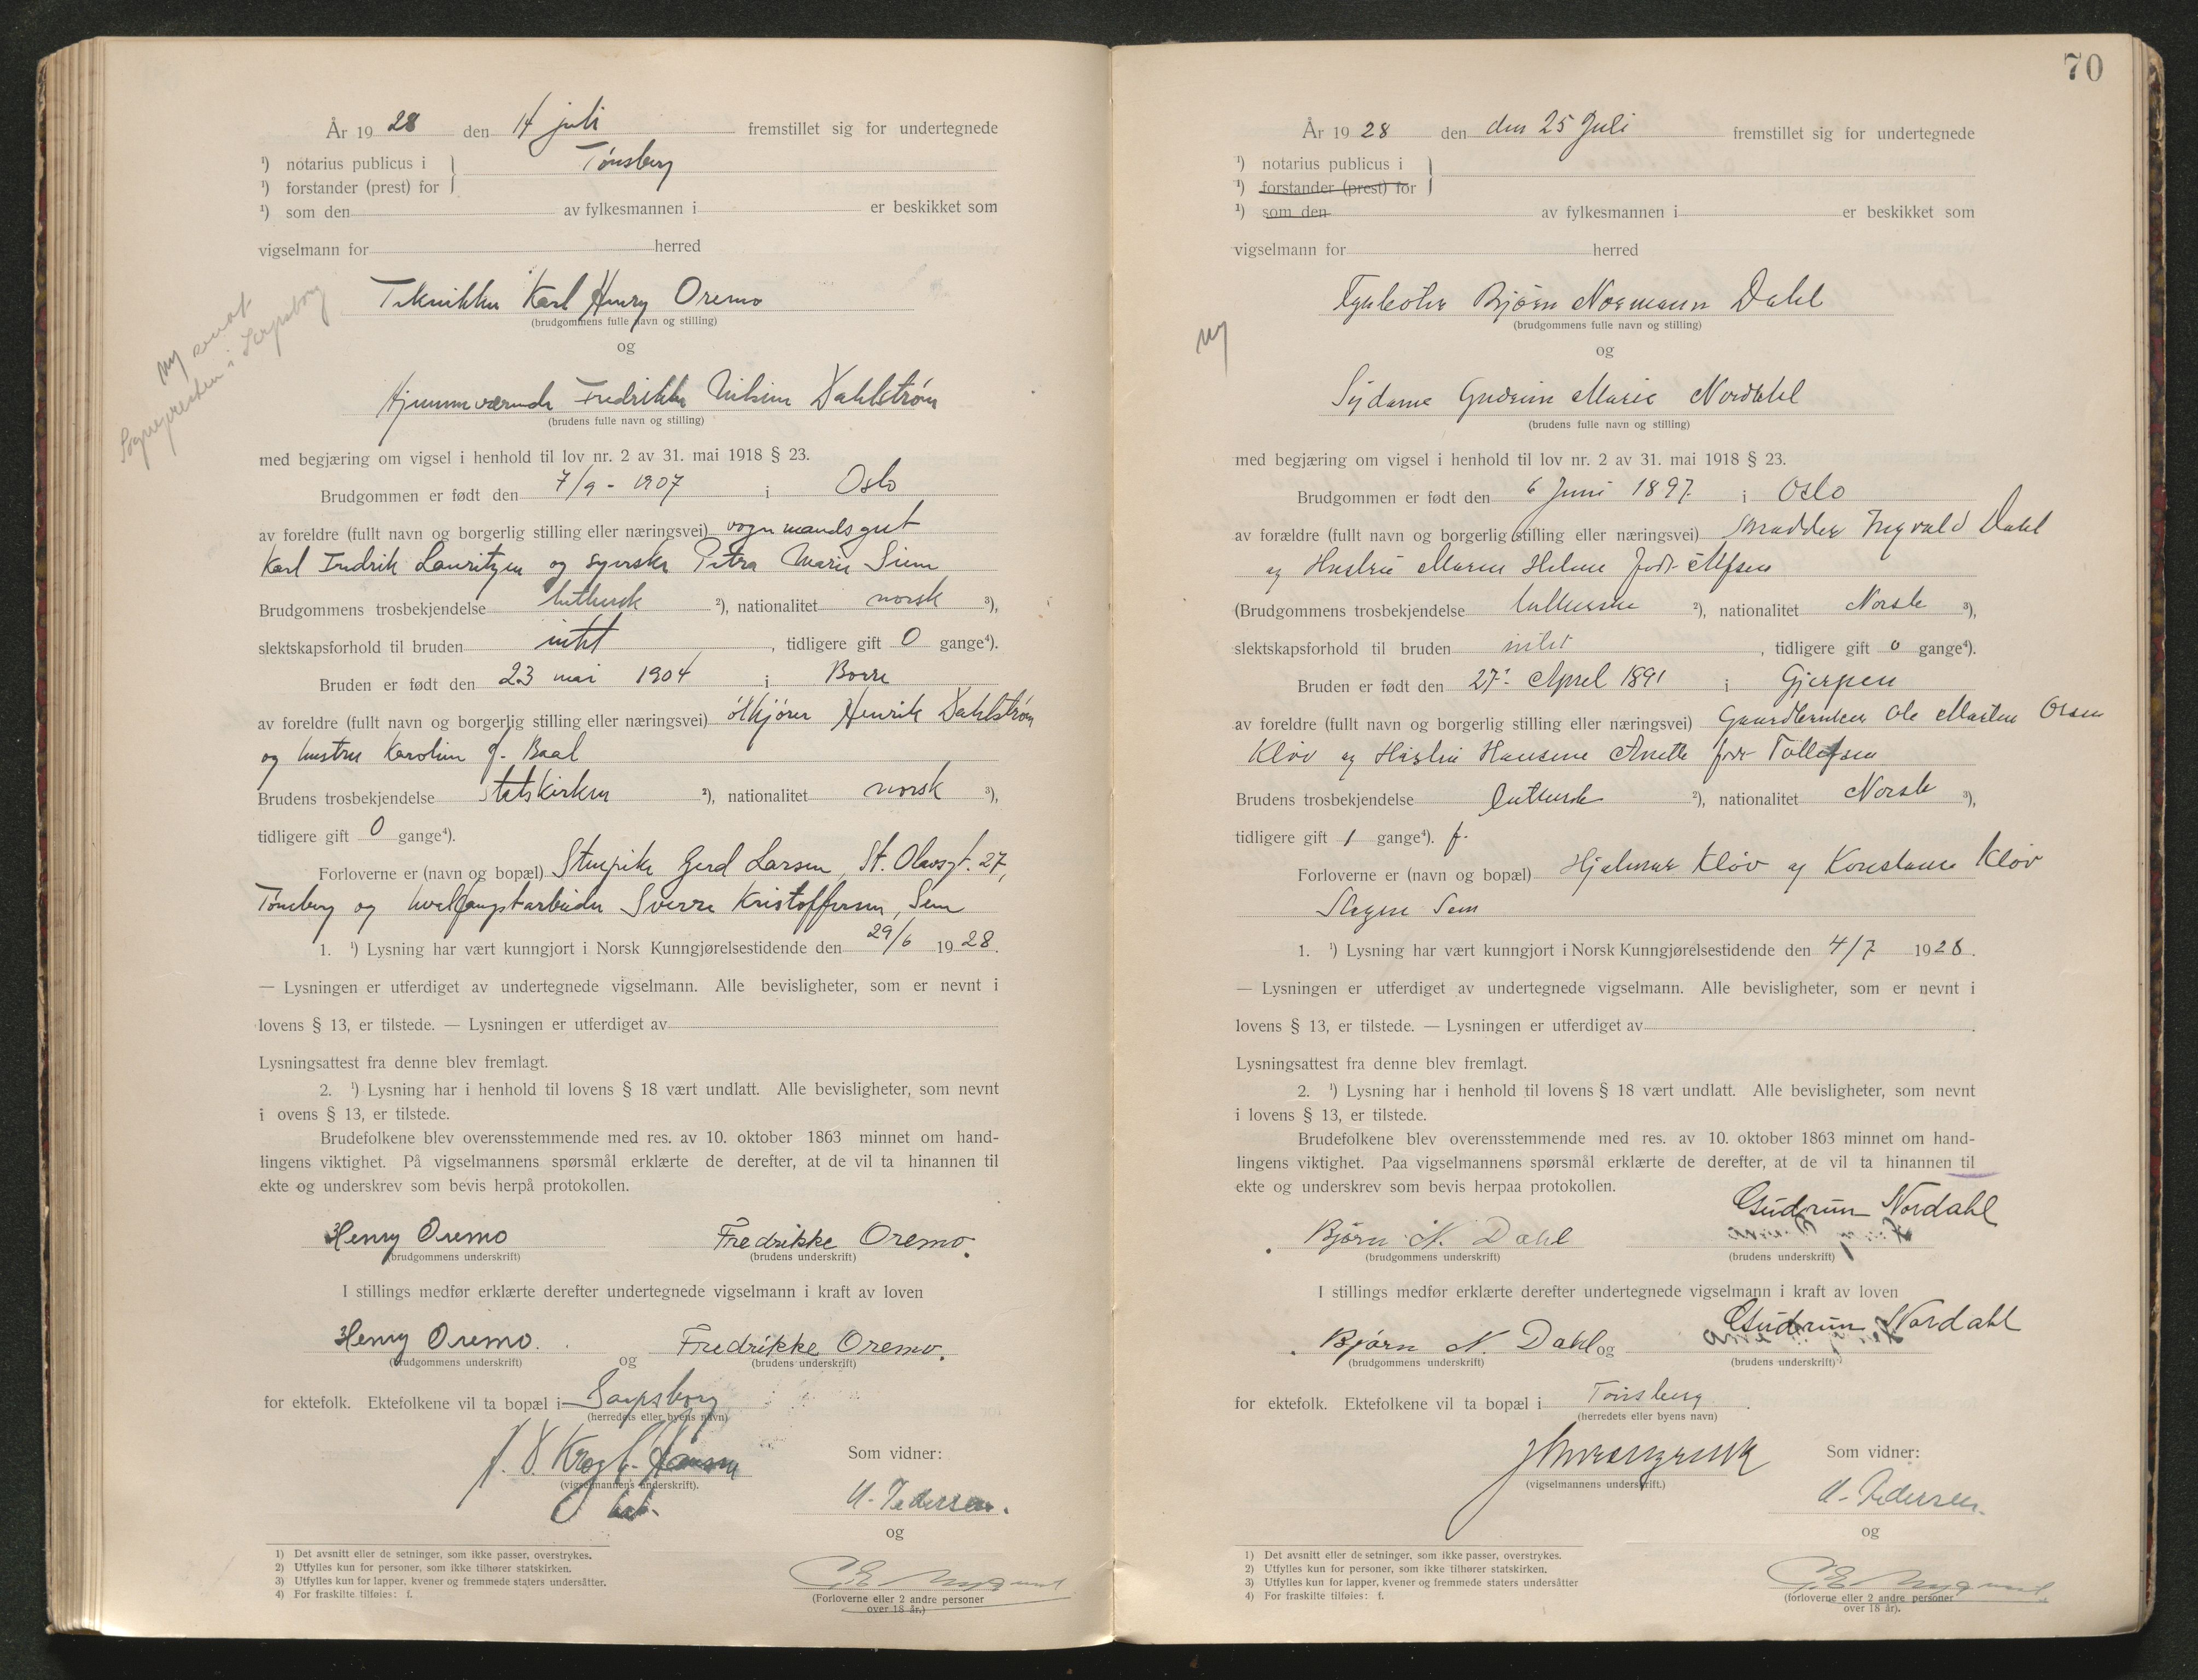 År 19 28 den 14 juli fremstillet sig for undertegnede
¹) notarius publicus i Tønsberg
¹) forstander (prest) for
¹) som den av fylkesmannen i er beskikket som
vigselmann for herred
Tekniker Karl Henry Oremo
(brudgommens fulle navn og stilling)
og
ny sendt
Sognepresten i Sarpsborg
Hjemmeværende Fredrikke Dahlstrøm
(brudens fulle navn og stilling)
med begjæring om vigsel i henhold til lov nr. 2 av 31. mai 1918 § 23.
Brudgommen er født den 7/9 - 1907 i Oslo
av foreldre (fullt navn og borgerlig stilling eller næringsvei) vognmandsgut
Karl Fredrik Lauritzen og syerske Petra Marie Siem
Brudgommens trosbekjendelse luthersk ²), nationalitet norsk ³),
slektskapsforhold til bruden intet, tidligere gift 0 gange⁴).
Bruden er født den 23 mai 1904 i Borre
av foreldre (fullt navn og borgerlig stilling eller næringsvei) ølkjører Henrik Dahlstrøm
og hustru Karoline f. Baal
Brudens trosbekjendelse statskirken ²), nationalitet norsk ³),
tidligere gift 0 gange⁴).
Forloverne er (navn og bopæl) Stuepike Gerd Larsen, St. Olavsgt. 27,
Tønsberg og hvalfangstarbeider Sverre Kristoffersen, Sem
1. ¹) Lysning har vært kunngjort i Norsk Kunngjørelsestidende den 29/6 1928.
— Lysningen er utferdiget av undertegnede vigselmann. Alle bevisligheter, som er nevnt i
lovens § 13, er tilstede. — Lysningen er utferdiget av
Lysningsattest fra denne blev fremlagt.
2. ¹) Lysning har i henhold til lovens § 18 vært undlatt. Alle bevisligheter, som nevnt
i ovens § 13, er tilstede.
Brudefolkene blev overensstemmende med res. av 10. oktober 1863 minnet om hand-
lingens viktighet. På vigselmannens spørsmål erklærte de derefter, at de vil ta hinannen til
ekte og underskrev som bevis herpå protokollen.
Henry Oremo Fredrikke Oremo.
(brudgommens underskrift) (brudens underskrift)
I stillings medfør erklærte derefter undertegnede vigselmann i kraft av loven
Henry Oremo. og Fredrikke Oremo.
(brudgommens underskrift) (brudens underskrift)
for ektefolk. Ektefolkene vil ta bopæl i Sarpsborg
(herredets eller byens navn)
Krogh-Hansen
Som vidner:
(vigselmannens underskrift).
U. Pedersen.
og
1) Det avsnitt eller de setninger, som ikke passer, overstrykes.
2) Utfylles kun for personer, som ikke tilhører statskirken.
3) Utfylles kun for lapper, kvener og fremmede staters undersåtter.
4) For fraskilte tilføies: f.
(Forloverne eller 2 andre personer
over 18 år.)
70
År 19 28 den den 25 Juli fremstillet sig for undertegnede
¹) notarius publicus i
¹) forstander (prest) for
¹) som den av fylkesmannen i er beskikket som
vigselmann for herred
Bjørn Normann Dahl
(brudgommens fulle navn og stilling)
ny
og
Sydame Gudrun Marie Nordahl
(brudens fulle navn og stilling)
med begjæring om vigsel i henhold til lov nr. 2 av 31. mai 1918 § 23.
Brudgommen er født den 6 Juni 1897 i Oslo
av forældre (fullt navn og borgerlig stilling eller næringsvei) Skrædder Ingvald Dahl
og Hustru Maren Helene født Alfsen
(Brudgommens trosbekjendelse lutherske ²), nationalitet Norsk ³),
slektskapsforhold til bruden intet, tidligere gift 0 gange⁴).
Bruden er født den 27' April 1891 i Gjerpen
av foreldre (fullt navn og borgerlig stilling eller næringsvei) Gaardbruker Ole Martin Olsen
Kløv og Hustru Hansine Anette født Tollefsen
Brudens trosbekjendelse luthersk ²), nationalitet Norsk ³),
tidligere gift 1 gange⁴). f.
Forloverne er (navn og bopæl) Hjalmar Kløv og Konstanse Kløv
Slagen Sem
1. ¹) Lysning har vært kunngjort i Norsk Kunngjørelsestidende den 4/7 1928.
— Lysningen er utferdiget av undertegnede vigselmann. Alle bevisligheter, som er nevnt i
lovens § 13, er tilstede. — Lysningen er utferdiget av
Lysningsattest fra denne blev fremlagt.
2. ¹) Lysning har i henhold til lovens § 18 vært undlatt. Alle bevisligheter, som nevnt
i lovens § 13, er tilstede.
Brudefolkene blev overensstemmende med res. av 10. oktober 1863 minnet om hand-
lingens viktighet. Paa vigselmannens spørsmål erklærte de derefter, at de vil ta hinannen til
ekte og underskrev som bevis herpaa protokollen.
Bjørn N. Dahl Gudrun Nordahl
(brudgommens underskrift) (brudens underskrift)
I stillings medfør erklærte derefter undertegnede vigselmann i kraft av loven
Bjørn N. Dahl og Gudrun Nordahl
(brudgommens underskrift) (brudens underskrift)
for ektefolk. Ektefolkene vil ta bopæl i Tønsberg.
(herredets eller byens navn)
Som vidner:
(vigselmannens underskrift.)
U. Pedersen.
og
1) Det avsnitt eller de setninger, som ikke passer, overstrykes.
2) Utfylles kun for personer, som ikke tilhører statskirken.
3) Utfylles kun for lapper, kvener og fremmede staters undersåtter
4) For fraskilte tilføies: f.
(forloverne eller 2 andre personer
over 18 år).